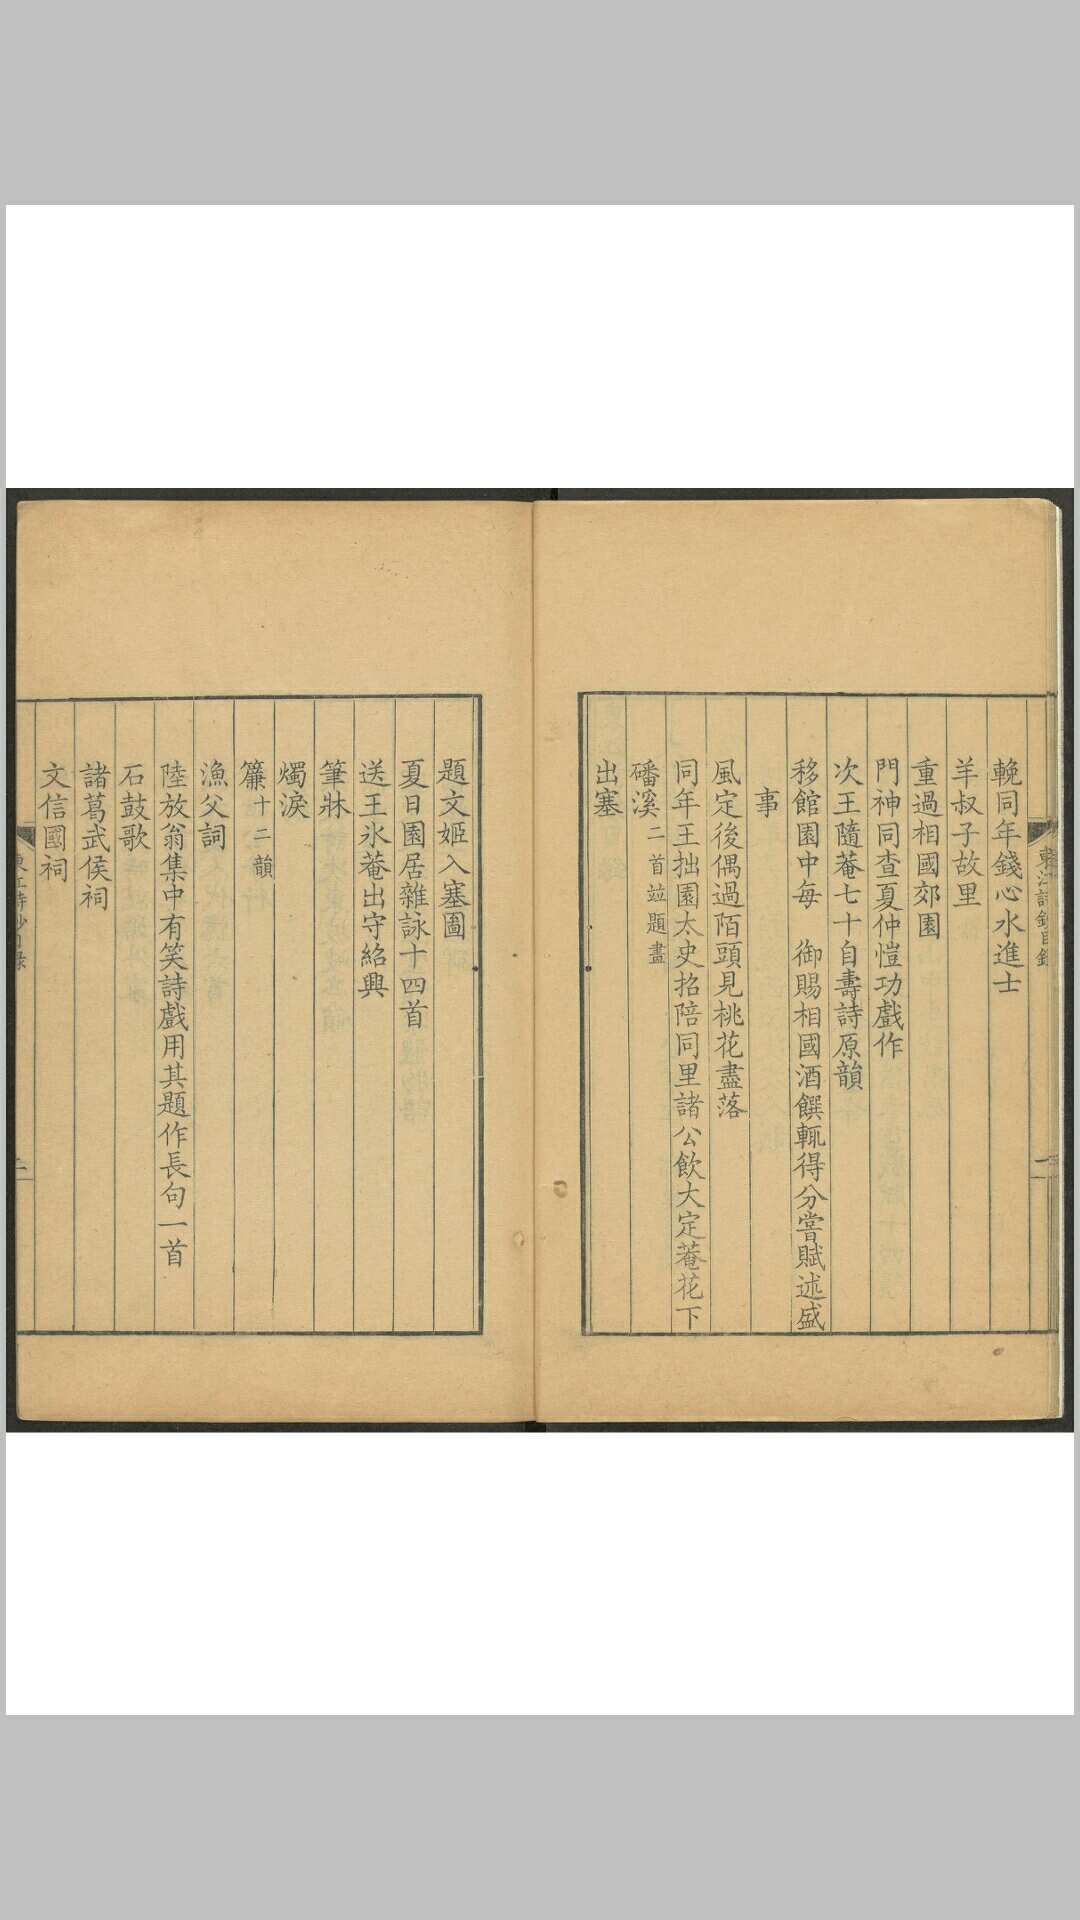 東江詩鈔目錄
一
輓同年錢心水進士
羊叔子故里
重過相國郊園
門神同查夏仲愷功戲作
次王隨菴七十自壽詩原韻
移館園中每　御賜相國酒饌輒得分嘗賦述盛
事
風定後偶過陌頭見桃花盡落
同年王拙園太史招陪同里諸公飲大定菴花下
磻溪二首竝題畫
出塞
題文姬入塞圖
夏日園居雜詠十四首
送王氷菴出守紹興
筆牀
燭淚
簾十二韻
漁父詞
陸放翁集中有笑詩戲用其題作長句一首
石鼓歌
諸葛武侯祠
文信國祠
東江詩鈔目錄
二